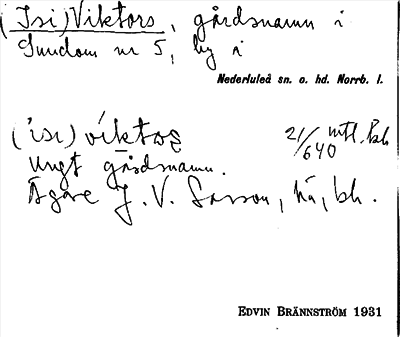 (Isi)Viktors, gårdsnamn i
Sundom nr 5, by i
Nederluleå sn. o. hd. Norrb. l.
21/640 mtl.
Ungt gårdsnamn.
Ägare J. V. Larsson, hä, bh.
EDVIN BRÄNNSTRÖM 1931